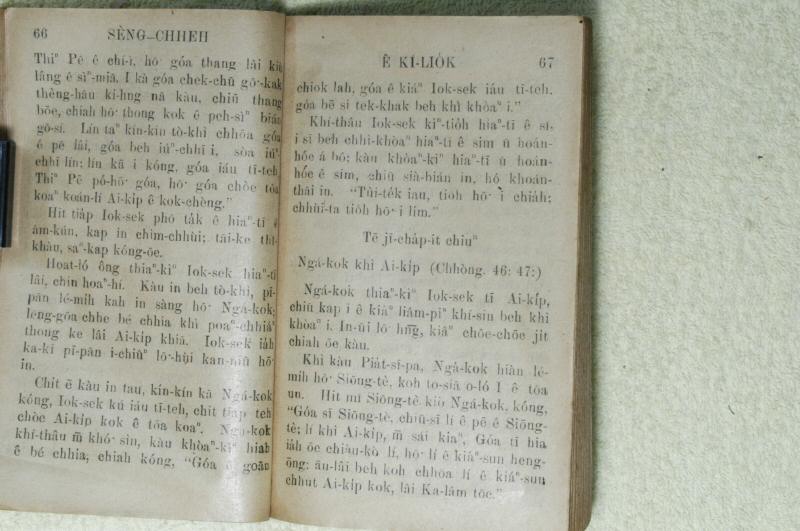 66 SÈNG-CHHEH
Thiⁿ Pē ê chí-ì, hō͘ góa thang lâi kiù
lâng ê sìⁿ-miā. I kà góa chek-chū gō͘-kak
thèng-hāu ki-hng nā kàu, chiū thang
bōe, chiah hō͘ thong kok ê peh-sìⁿ bián
gō-sí. Lín taⁿ kín-kín tò-khì chhōa góa
ê pē lâi, góa beh iúⁿ-chhī i, sòa iúⁿ-
chhī lín; lín kā i kóng, góa iáu tī-teh
Thiⁿ Pē pó-hō͘ góa, hō͘ góa chòe tōa
koaⁿ koán-lí Ai-ki̍p ê kok-chèng."
Hit tia̍p Iok-sek phō ta̍k ê hiaⁿ-tī ê
ām-kún, kap in chim-chhùi; tāi-ke thî-
khàu, saⁿ-kap kóng-ōe.
Hoat-ló ông thiaⁿ-kìⁿ Iok-sek hiaⁿ-tī
lâi, chin hoaⁿ-hí. Kàu in beh tò-khì, pī-
pān lé-mi̍h kah in sàng hō͘ Ngá-kok;
lēng-gōa chhe bé chhia khì poaⁿ-chhiáⁿ
thong ke lâi Ai-ki̍p khiā. Iok-sek iáh
ka-kī pī-pān i-chiûⁿ lō͘-hùi kan-niû hō͘
in.
Chit ē kàu in tau, kín-kín kā Ngá-kok
kóng, Iok-sek kú iáu tī-teh, chit tia̍p teh
chòe Ai-ki̍p kok ê tōa koaⁿ. Ngá-kok
khí-thâu m̄ khó͘ sìn, kàu khòaⁿ-kìⁿ hiah
ê bé chhia, chiah kóng, "Góa ê goān
Ê KÌ-LIO̍K 67
chiok lah, góa ê kiáⁿ Iok-sek iáu tī-teh.
góa bē sí tek-khak beh khì khòaⁿ i."
Khí-thâu Iok-sek kiⁿ-tio̍h hiaⁿ-tī ê sî,
i sī beh chhì-khòaⁿ hiaⁿ-tī ê sim ū hoán-
hóe á bô; kàu khòaⁿ-kìⁿ hiaⁿ-tī ū hoán-
hóe ê sim, chiū sià-bián in, hó khoán-
thāi in. "Tùi-te̍k iau, tio̍h hō͘ i chia̍h;
chhùi-ta tio̍h hō͘ i lim."
Tē jī-cha̍p-it chiuⁿ
Ngá-kok khì Ai-ki̍p (Chhòng. 46: 47:)
Ngá-kok thiaⁿ-kìⁿ Iok-sek tī Ai-ki̍p,
chiū kap i ê kiáⁿ liâm-piⁿ khí-sin beh khì
khòaⁿ i. In-ūi lō͘ hn̄g, kiâⁿ chōe-chōe ji̍t
chiah ōe kàu.
Khì kàu Pia̍t-sī-pa, Ngá-kok hiàn lé-
mi̍h hō͘ Siōng-tè, koh to-siā o-ló I ê tōa
un. Hit mî Siōng-tè kiò Ngá-kok, kóng,
"Góa sī Siōng-tè, chiū-sī lí ê pē ê Siōng-
tè; lí khì Ai-ki̍p, m̄ sái kiaⁿ, Góa tī hia
ia̍h ōe chiàu-kò͘ lí, hō͘ lí ê kiáⁿ-sun heng-
ōng; āu-lâi beh koh chhōa lí ê kiáⁿ-sun
chhut Ai-ki̍p kok, lâi Ka-lâm tōe."